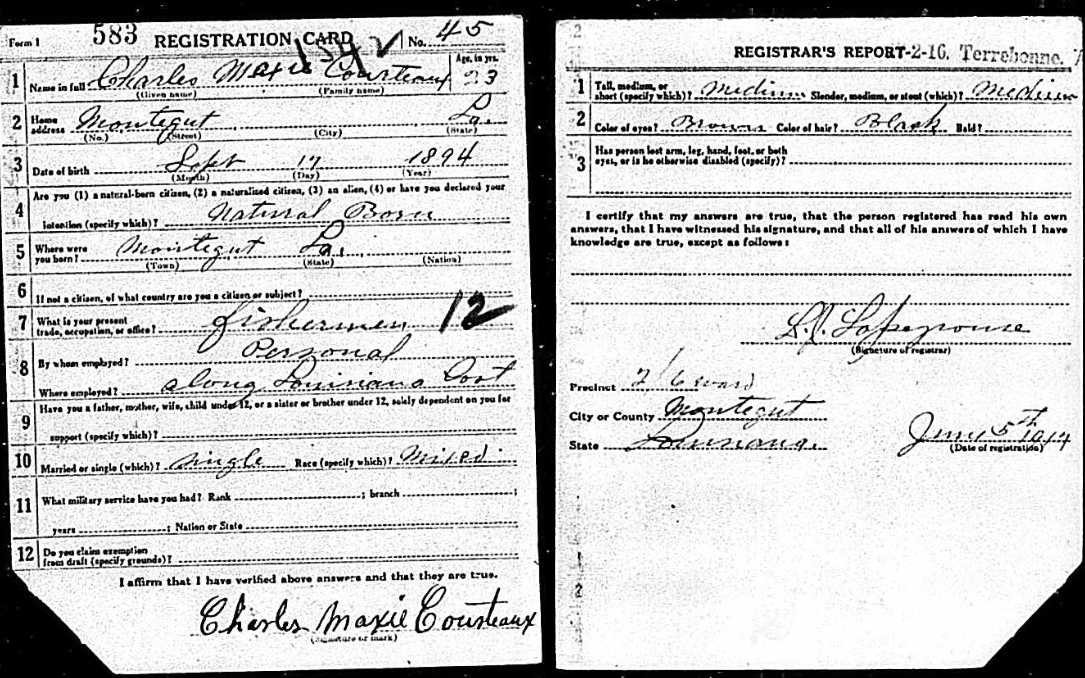 Form 1 583 REGISTRATION CARD No. 45
1 Name in full Charles Maxie Courteaux Age, in yrs. 23
(Given name) (Family name)
2 Home address Montegut La.
(No.) (Street) (City) (State)
3 Date of birth Sept 17 1894
(Month) (Day) (Year)
4 Are you (1) a natural-born citizen, (2) a naturalized citizen, (3) an alien, (4) or have you declared your
intention (specify which)? Natural Born
5 Where were you born? Montegut La.
(Town) (State) (Nation)
6 If not a citizen, of what country are you a citizen or subject?
7 What is your present trade, occupation, or office? fishermen 12
8 By whom employed? Personal
Where employed? along Louisiana Cost
9 Have you a father, mother, wife, child under 12, or a sister or brother under 12, solely dependent on you for
support (specify which)?
10 Married or single (which)? single Race (specify which)? Mixed
11 What military service have you had? Rank ; branch ;
years ; Nation or State
12 Do you claim exemption from draft (specify grounds)?
I affirm that I have verified above answers and that they are true.
Charles Maxie Courteaux
(Signature or mark)
REGISTRAR'S REPORT-2-16. Terrebonne.
1 Tall, medium, or short (specify which)? Medium Slender, medium, or stout (which)? Medium
2 Color of eyes? Brown Color of hair? Black Bald?
3 Has person lost arm, leg, hand, foot, or both
eyes, or is he otherwise disabled (specify)?
I certify that my answers are true, that the person registered has read his own
answers, that I have witnessed his signature, and that all of his answers of which I have
knowledge are true, except as follows:
(Signature of registrar)
Precinct 2/6 ward
City or County Montegut
State Louisiana
June 5th
(Date of registration)